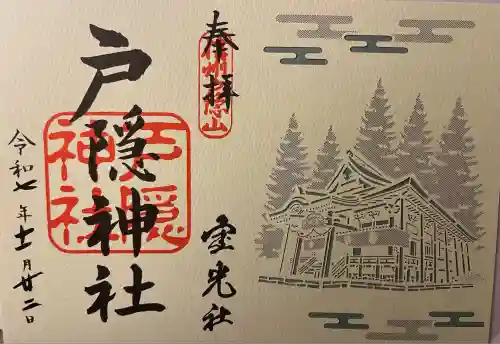 奉拝
信州戸隠山
戸隠神社
戸隠神社
宝光社
令和七年十一月廿二日